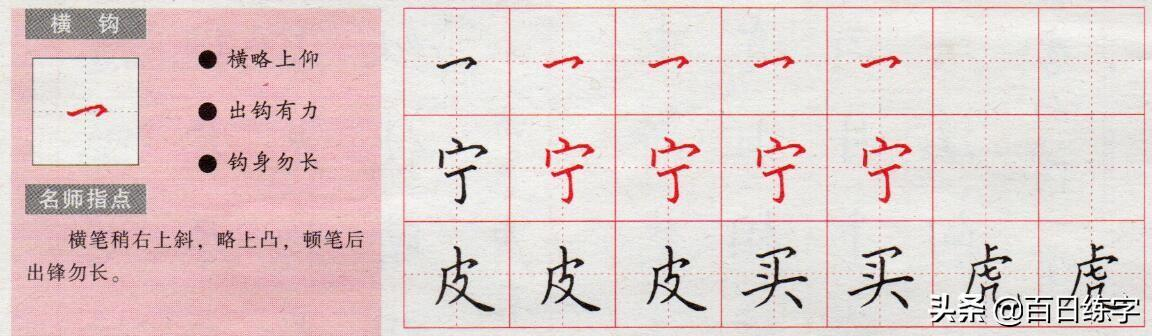 横 钩
● 横略上仰
● 出钩有力
● 钩身勿长
名师指点
横笔稍右上斜，略上凸，顿笔后
出锋勿长。
宁 宁 宁 宁 宁
皮 皮 皮 买 买 虎 虎
头条 @百日练字